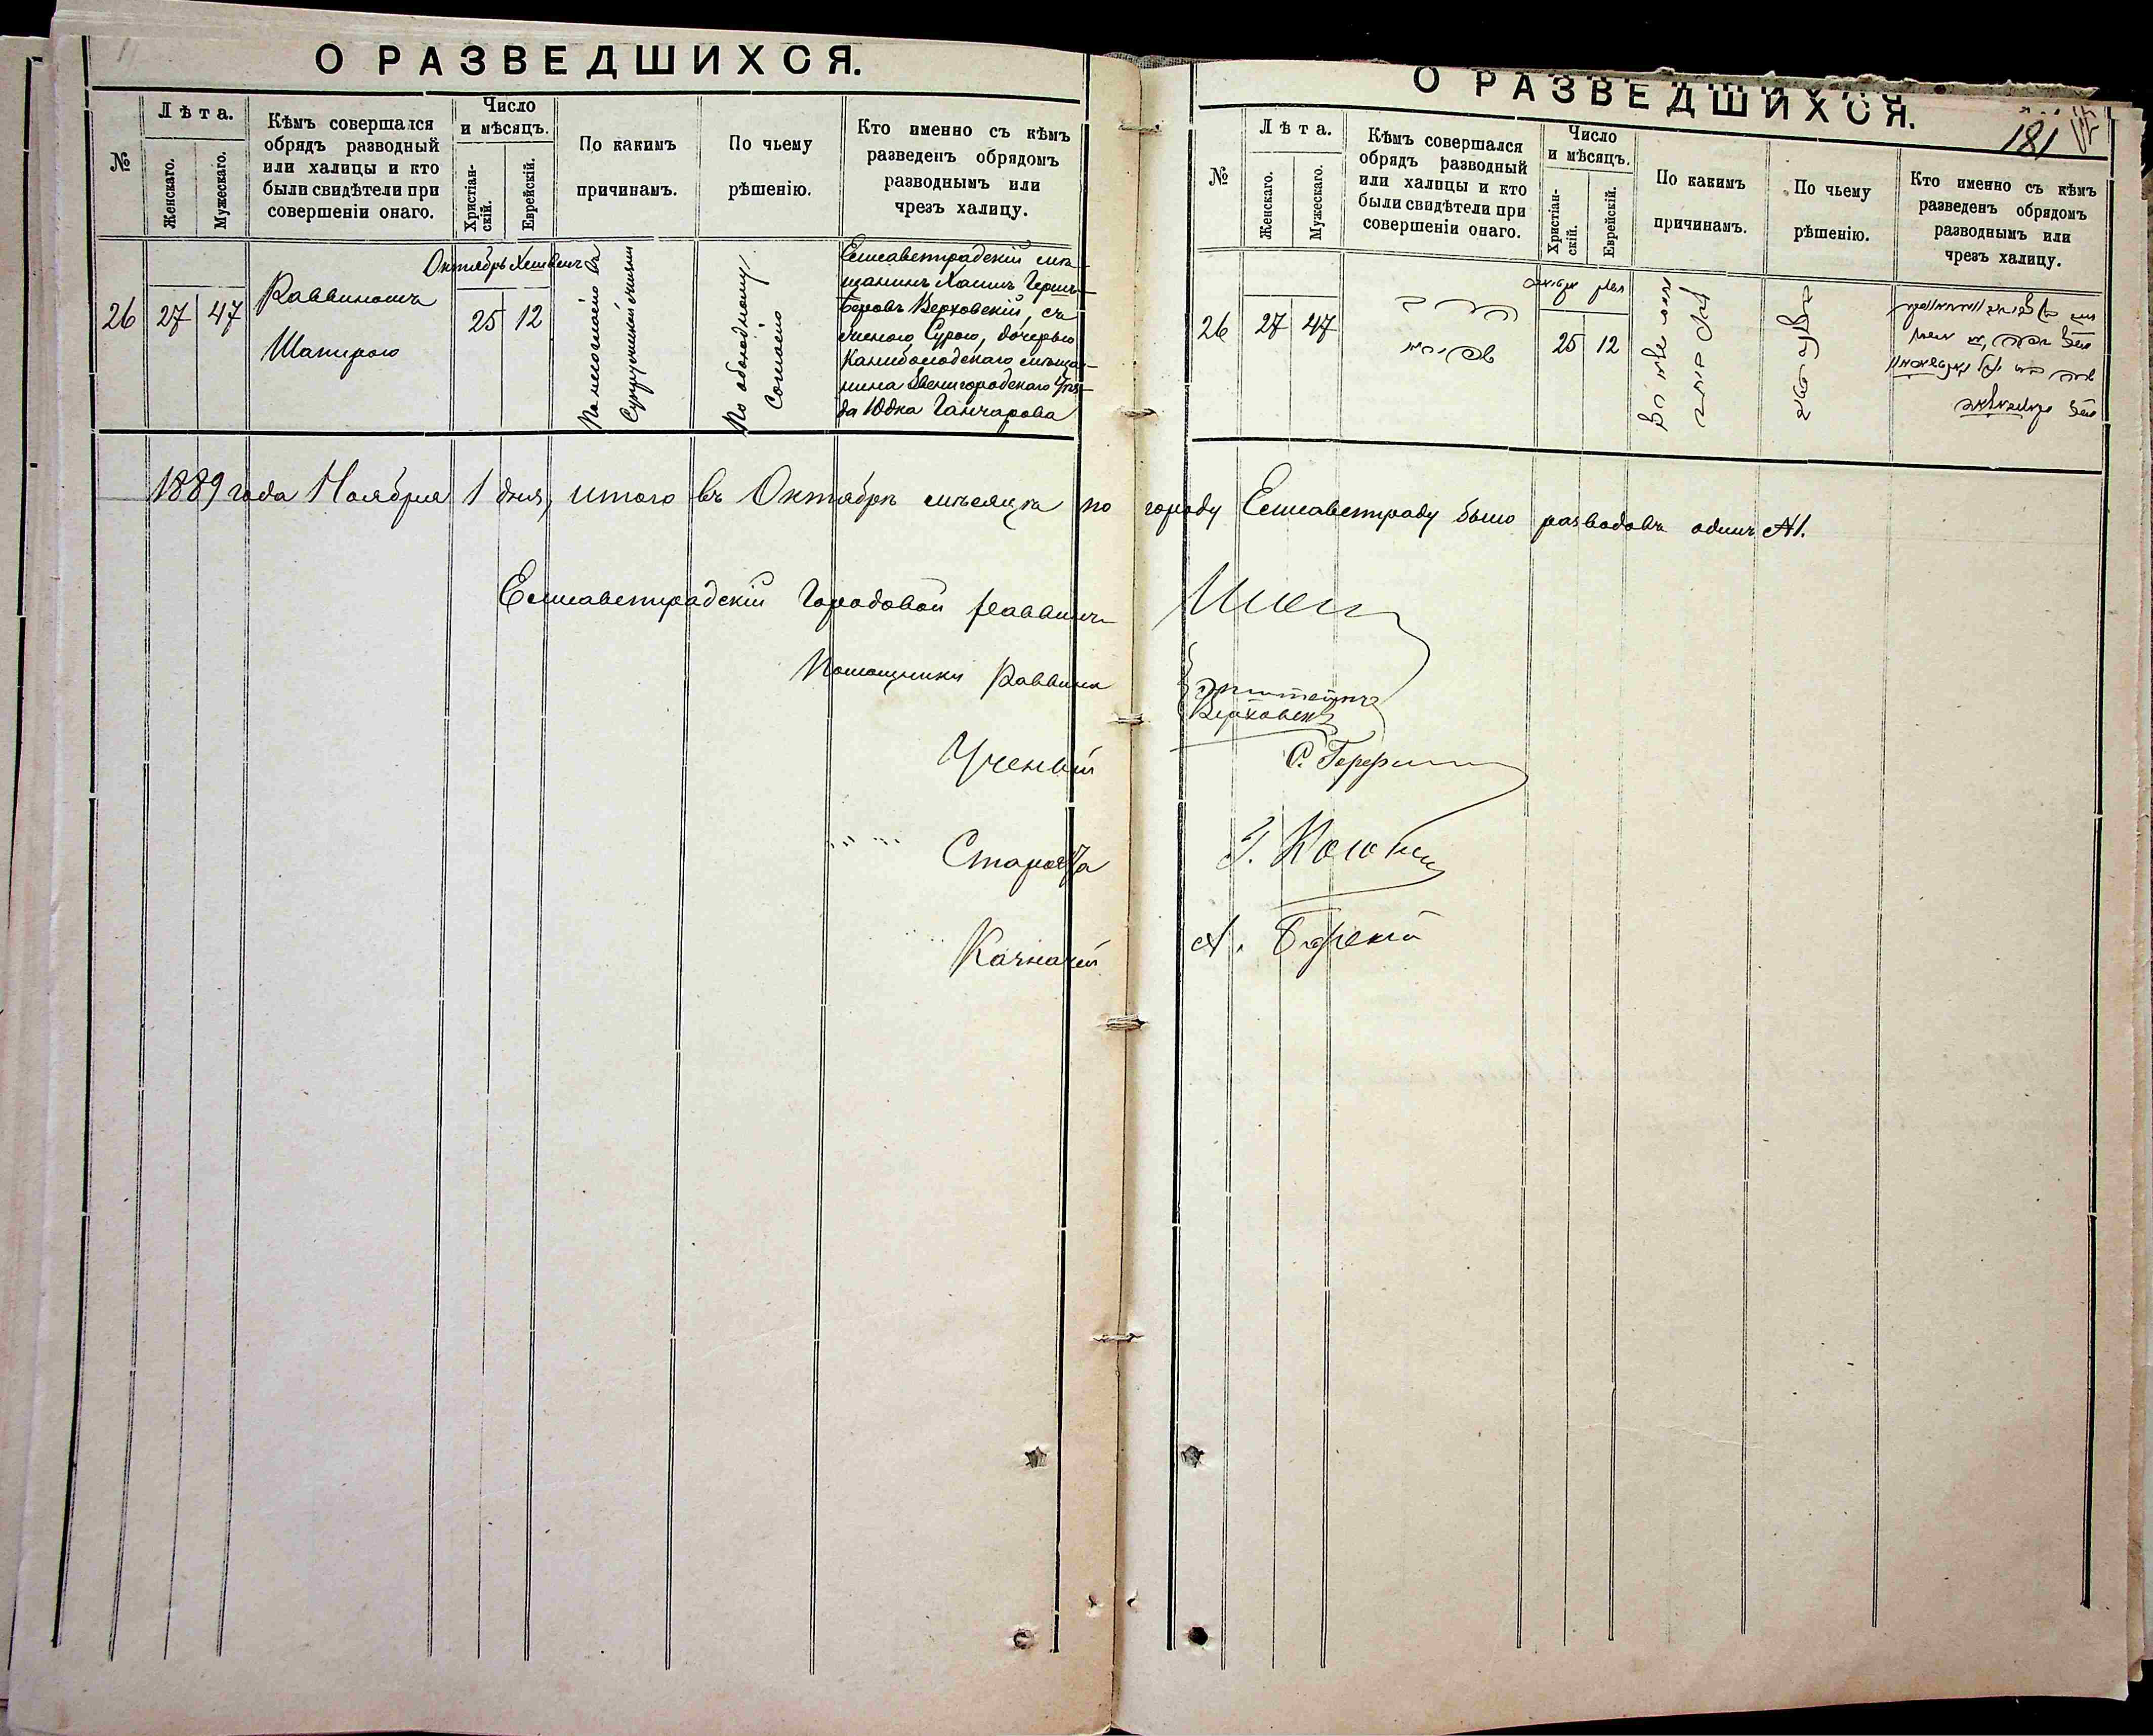 О РАЗВЕДШИХСЯ.
№
Лѣта.
Женскаго.
Мужескаго.
Кѣмъ совершался
обрядъ разводный
или халицы и кто
были свидѣтели при
совершеніи онаго.
Число
и мѣсяцъ.
Христіан-
скій.
Еврейскій.
По какимъ
причинамъ.
По чьему
рѣшенію.
Кто именно съ кѣмъ
разведенъ обрядомъ
разводнымъ или
чрезъ халицу.
26
27
47
Раввиномъ
Шапирою
Октябрь Хешвенъ
25
12
По несогласію въ
Супружеской жизни
По обоюдному
Согласію
Елисаветградскій мѣ-
щанинъ Хаимъ Герш-
Беровъ Верховскій, съ
женою Сурою, дочерью
мѣща-
нина Звенигородскаго Уѣз-
да Юдка Ганчарова
1889 года Ноября 1 дня, итого въ Октябрѣ мѣсяцѣ по городу Елисаветграду было разводовъ одинъ №1.
Елисаветградскій Городовой Раввинъ
Помощники Раввина
Ученый
Староста
Казначей
О РАЗВЕДШИХСЯ.
181
№
Лѣта.
Женскаго.
Мужескаго.
Кѣмъ совершался
обрядъ разводный
или халицы и кто
были свидѣтели при
совершеніи онаго.
Число
и мѣсяцъ.
Христіан-
скій.
Еврейскій.
По какимъ
причинамъ.
По чьему
рѣшенію.
Кто именно съ кѣмъ
разведенъ обрядомъ
разводнымъ или
чрезъ халицу.
26
27
47
25
12